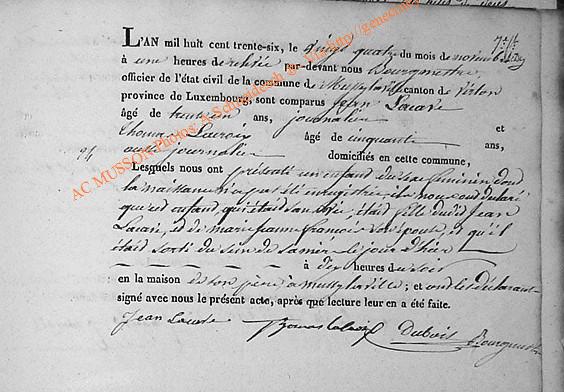 L'AN mil huit cent trente-six, le vingt quatre du mois de novembre
à une heures de relevée par-devant nous Bourgmestre
officier de l'état civil de la commune de Mussylaville canton de Virton
province de Luxembourg, sont comparus Jean
âgé de ans, journalier et
Thomas âgé de cinquante ans,
aussi journalier domiciliés en cette commune,
94
Lesquels nous ont présenté un enfant du sexe féminin dont
la naissance n'a pas été enregistrée ils nous ont déclaré
que cet enfant qui était sans vie, était fille dudit Jean
et de marie jeanne françois son épouse, et qu'il
était sorti du sein de sa mère le jour d'hier
à dix heures du soir
en la maison de son père à mussylaville; et ont les déclarants
signé avec nous le présent acte, après que lecture leur en a été faite.
Jean
Thomas
Dubois Bourgmestre
AC MUSSON Photos: A.Schneidesch © - Via http://geneco